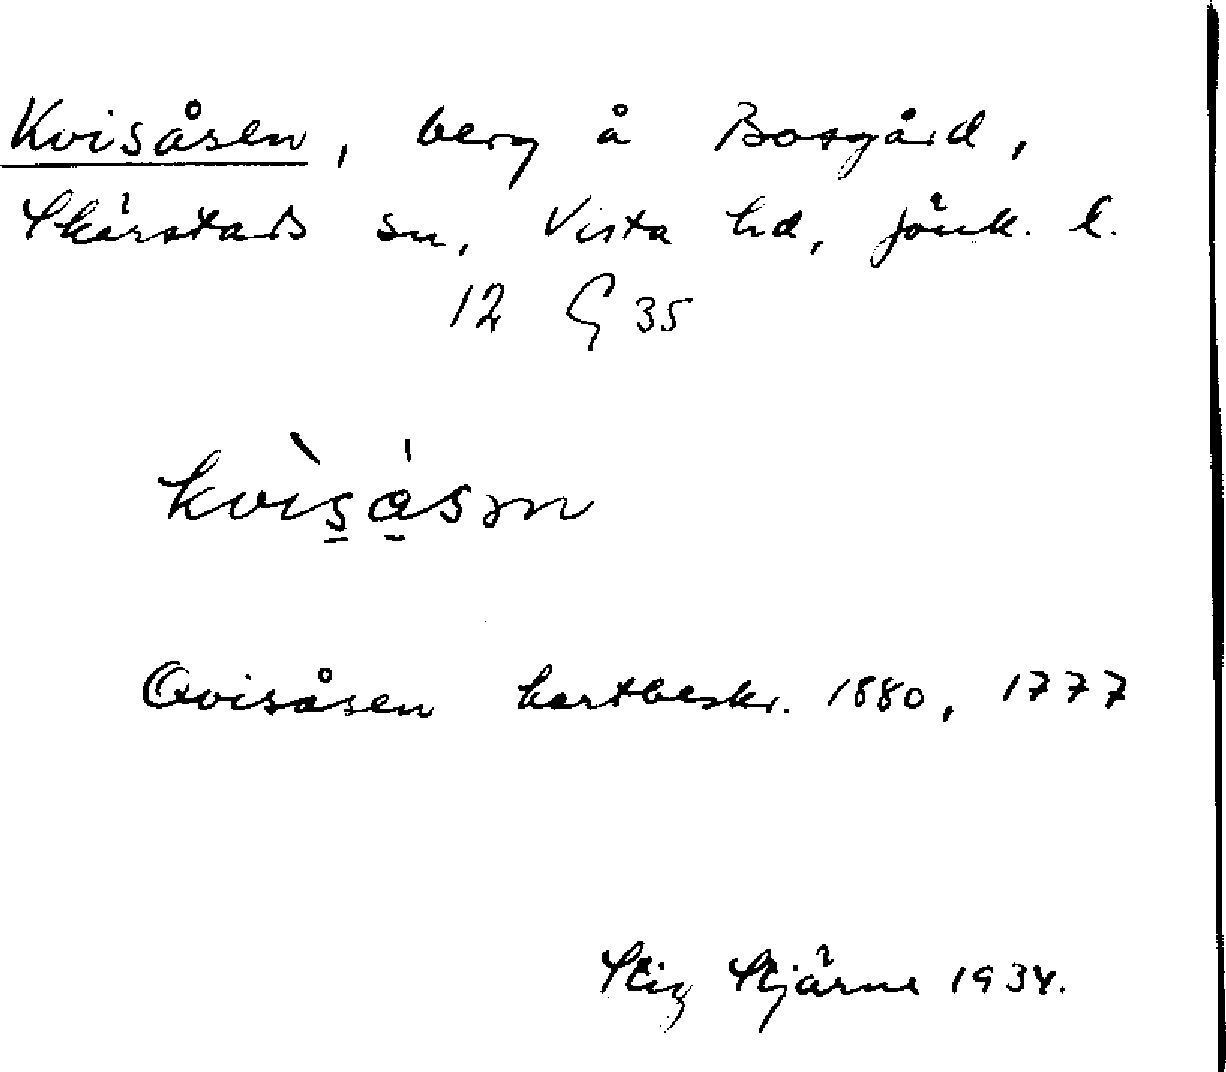 Kvisåsen, berg å Bosgård,
Skärstads sn, Vista hd, Jönk. l.
12 G 35
kvìsásn
Qvisåsen kartbeskr. 1880, 1777
Stig Stjärne 1934.